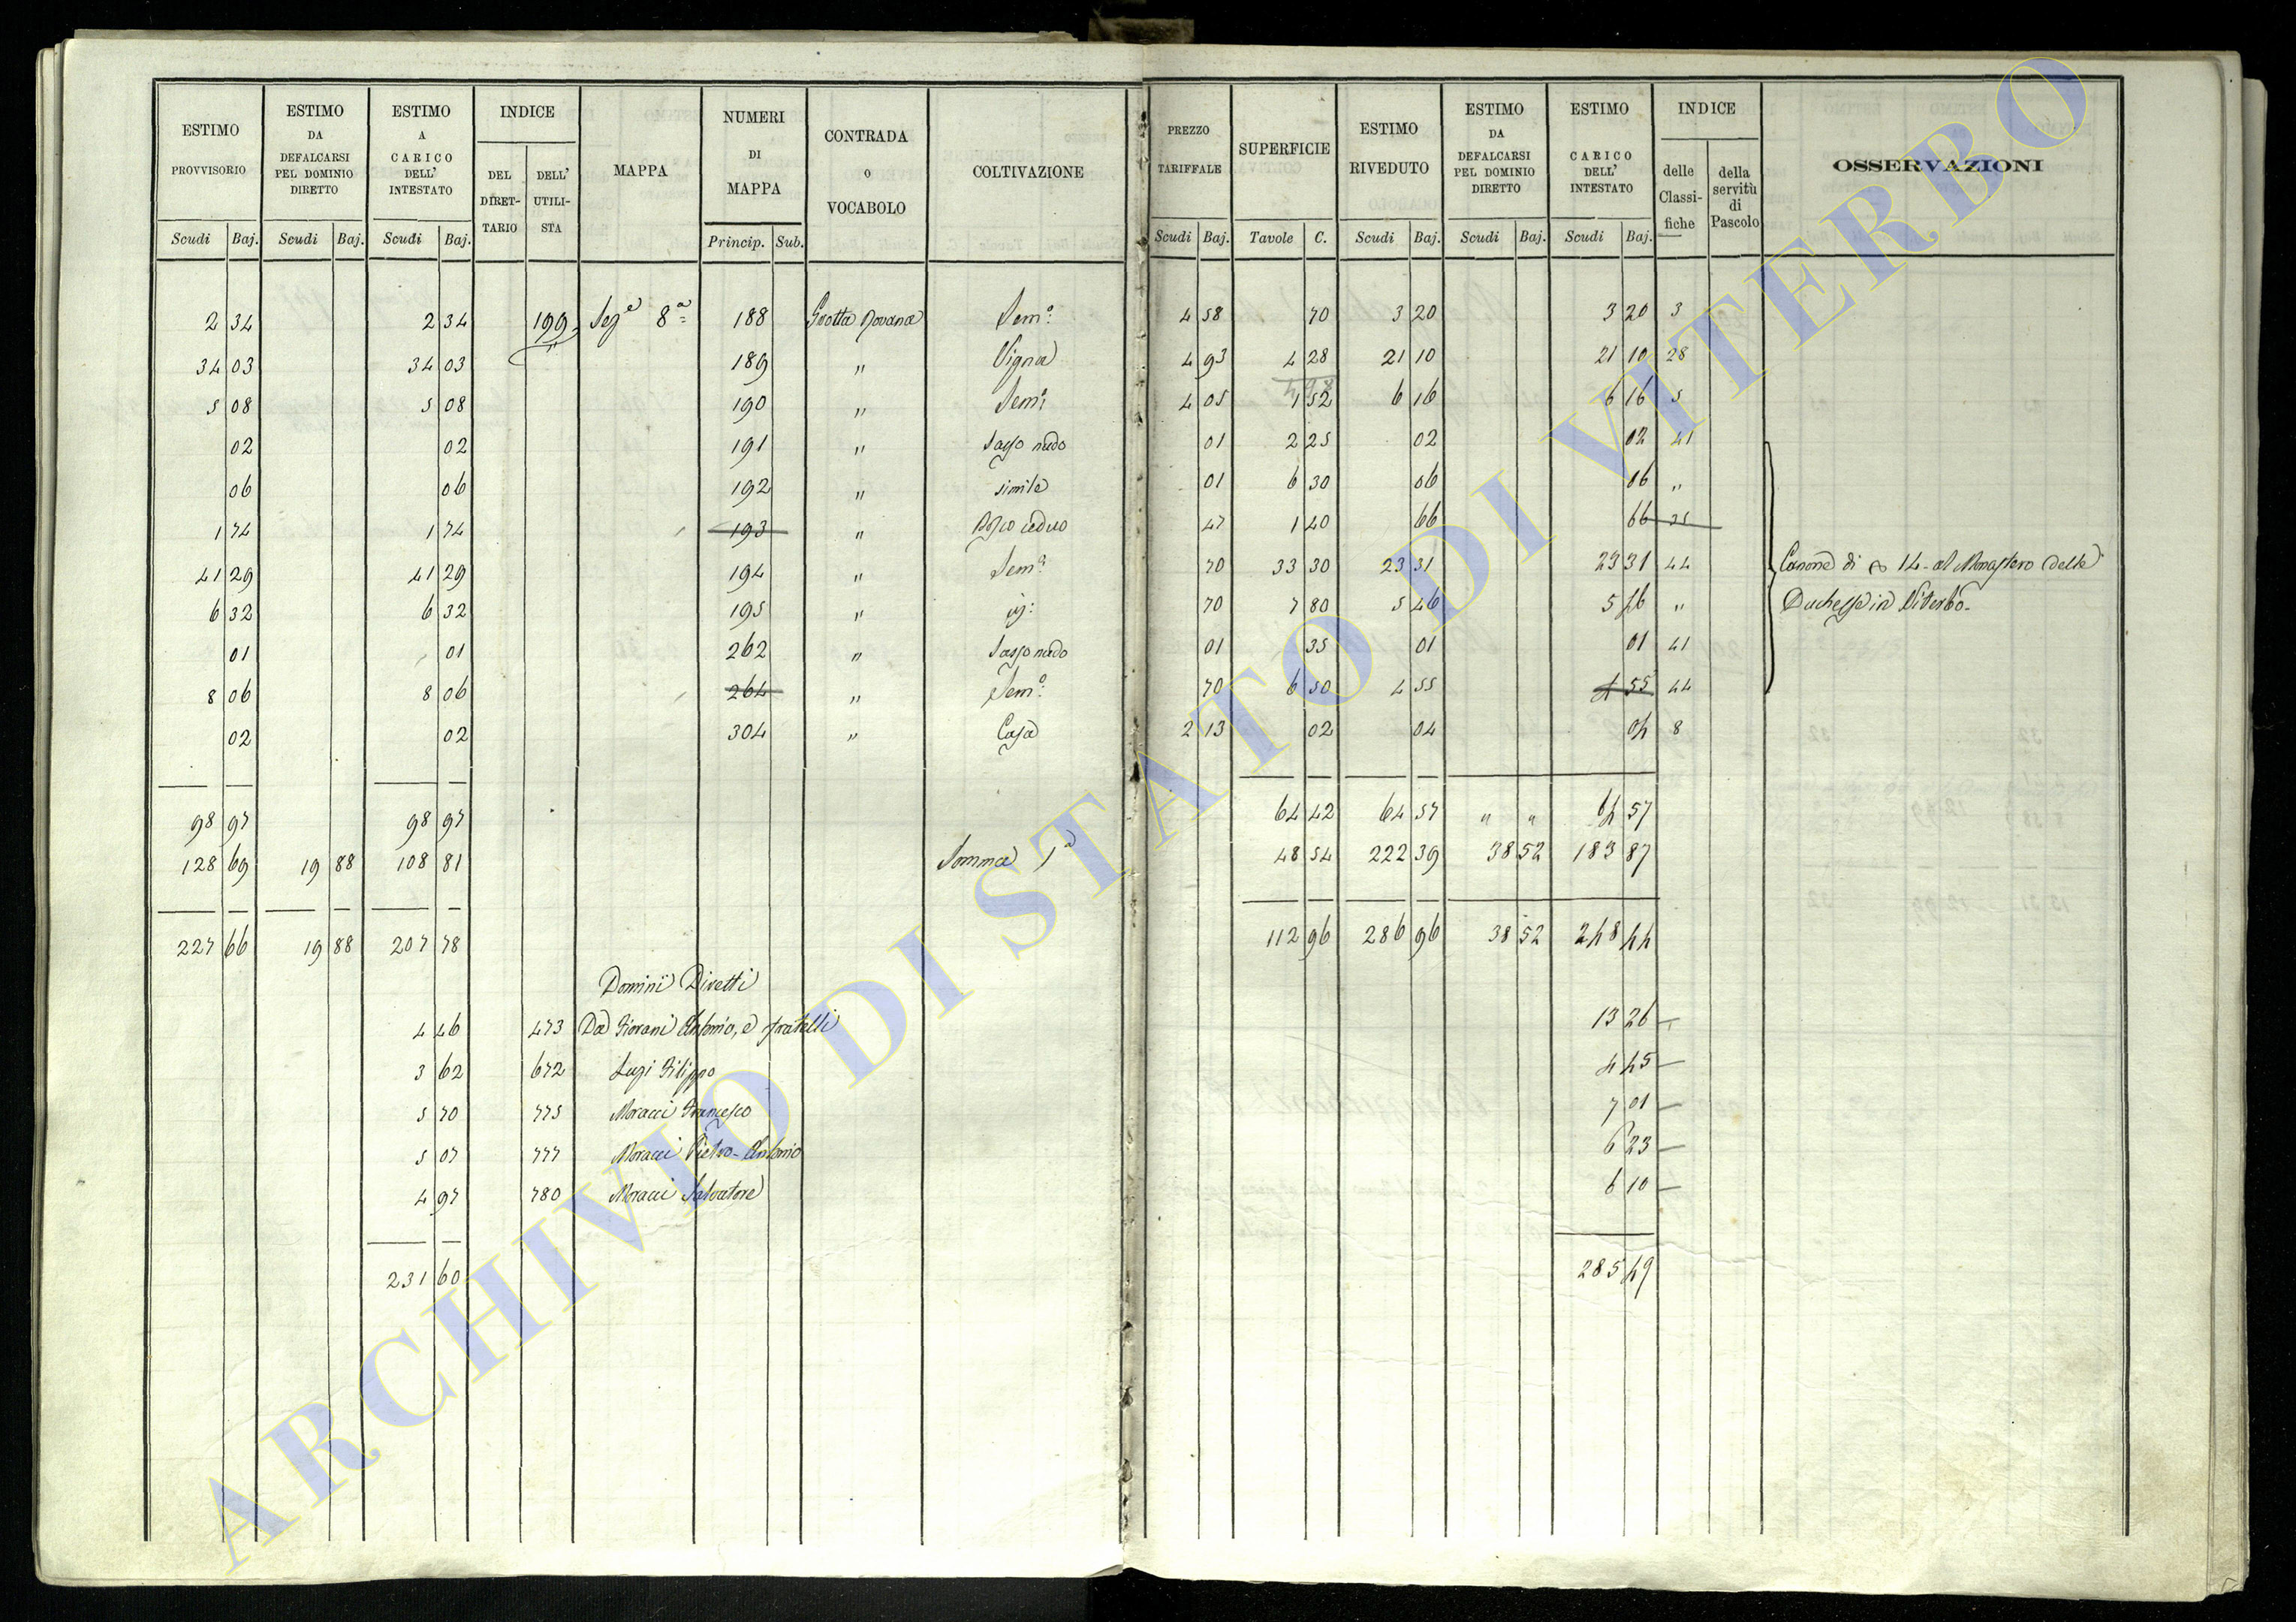 ESTIMO PROVVISORIO | ESTIMO DA DEFALCARSI PEL DOMINIO DIRETTO | ESTIMO A CARICO DELL' INTESTATO | INDICE DEL DIRETTARIO | DELL' UTILISTA | MAPPA | NUMERI DI MAPPA | CONTRADA O VOCABOLO | COLTIVAZIONE | PREZZO TARIFFALE | SUPERFICIE | ESTIMO RIVEDUTO | ESTIMO DA DEFALCARSI PEL DOMINIO DIRETTO | ESTIMO A CARICO DELL' INTESTATO | INDICE delle Classifiche | della servitù di Pascolo | OSSERVAZIONI
Scudi Baj. | Scudi Baj. | Scudi Baj. | Princip. Sub. | Scudi Baj. | Tavole C. | Scudi Baj. | Scudi Baj. | Scudi Baj.
2 34 | 2 34 | 199 | Sez.e 8a | 188 | Grotta | Sem.o | 4 58 | 70 | 3 20 | 3 20 | 3
34 03 | 34 03 | 189 | " | Vigna | 4 93 | 4 28 | 21 10 | 21 10 | 28
5 08 | 5 08 | 190 | " | Sem.o | 4 05 | 1 52 | 6 16 | 6 16 | 5
02 | 02 | 191 | " | Sasso nudo | 01 | 2 25 | 02 | 02 | 41
06 | 06 | 192 | " | simile | 01 | 6 30 | 06 | 06 | "
1 74 | 1 74 | 193 | " | Bosco ceduo | 47 | 1 40 | 66 | 66 | 25
41 29 | 41 29 | 194 | " | Sem.o | 70 | 33 30 | 23 31 | 23 31 | 44 | Canone di 14 - al Monastero delle
6 32 | 6 32 | 195 | " | 70 | 7 80 | 5 46 | 5 46 | " | Duchesse in Viterbo.
01 | 01 | 262 | " | Sasso nudo | 01 | 35 | 01 | 01 | 41
8 06 | 8 06 | 264 | " | Sem.o | 70 | 6 50 | 4 55 | 4 55 | 44
02 | 02 | 304 | " | Casa | 2 13 | 02 | 04 | 04 | 8
98 97 | 98 97 | 64 42 | 64 57 | " " | 64 57
128 69 | 19 88 | 108 81 | Somma 1a | 48 54 | 222 39 | 38 52 | 183 87
227 66 | 19 88 | 207 78 | 112 96 | 286 96 | 38 52 | 248 44
Dominii Diretti
4 46 | 473 | Da Fiorani Antonio, e fratelli | 13 26
3 62 | 672 | Luzi Filippo | 4 45
5 70 | 775 | Moracci Francesco | 7 01
5 07 | 777 | Moracci Pietro-Antonio | 6 23
4 97 | 780 | Moracci Salvatore | 6 10
231 60 | 285 49
ARCHIVIO DI STATO DI VITERBO